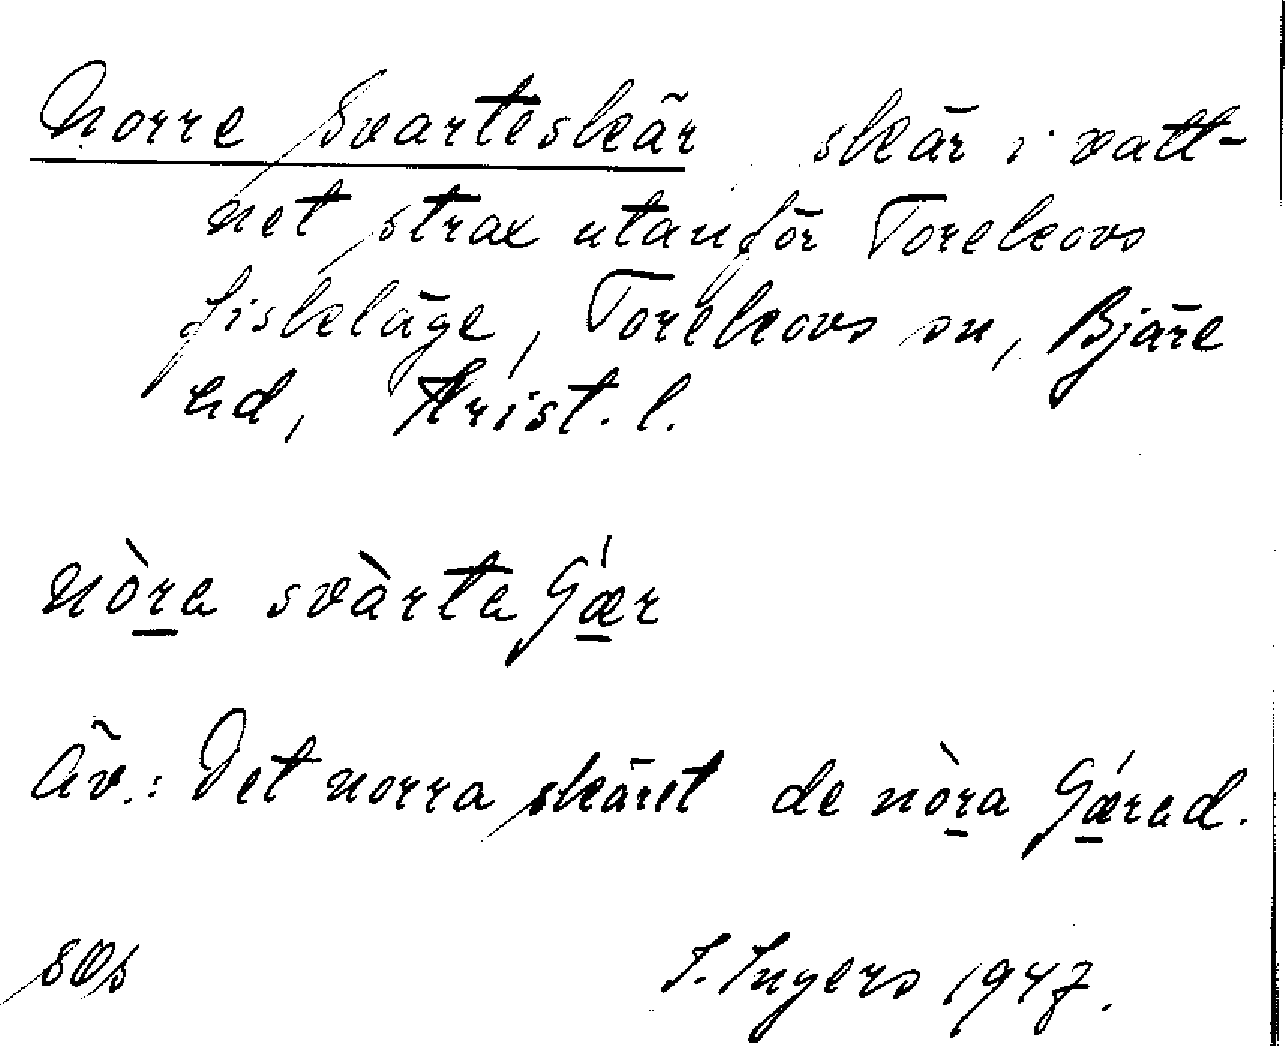 Norre Svarteskär skär i vatt-
net strax utanför Torekovs
fiskeläge, Torekovs sn, Bjäre
hd, Krist. l.
nòra svàrta ʃǽr
Äv.: Det norra skäret de nòra ʃǽrad.
I. Ingers 1947.